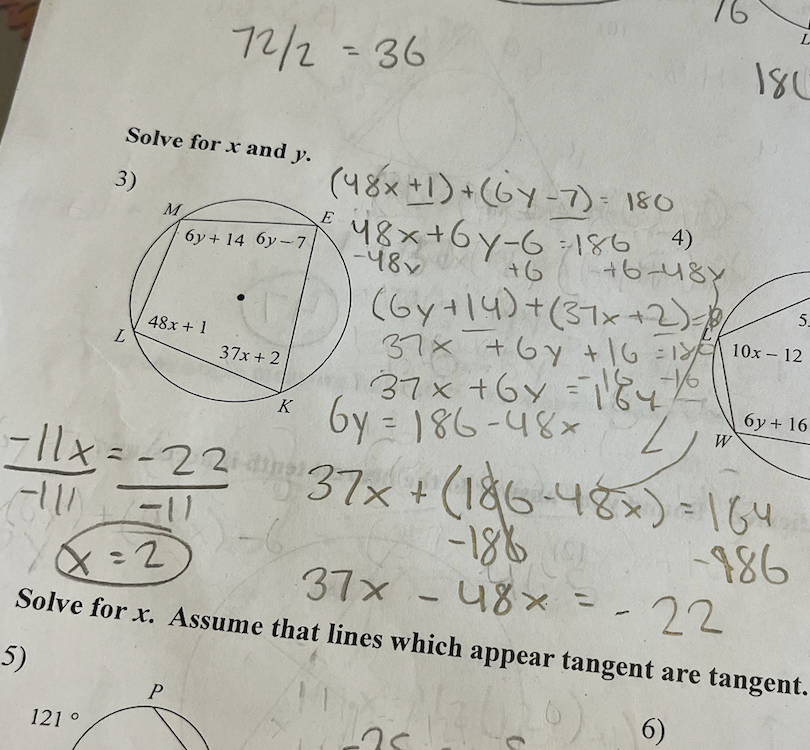 76
72/2 = 36
L
180
Solve for x and y.
3)
(48x+1)+(6y-7)= 180
M
E
6y + 14 6y – 7
48x+6y-6 =180 4)
-48x +6 +6-48x
L
48x + 1
(6y+14)+(37x+2)=
5
37x + 2
37x +6y +16 =180
10x – 12
K
37x +6y = 164
-16 -16
6y = 186-48x
6y + 16
W
-11x = -22
-11 -11
37x +(186-48x)= 164
-186 -186
x = 2
37x - 48x = - 22
Solve for x. Assume that lines which appear tangent are tangent.
5)
P
121 °
6)